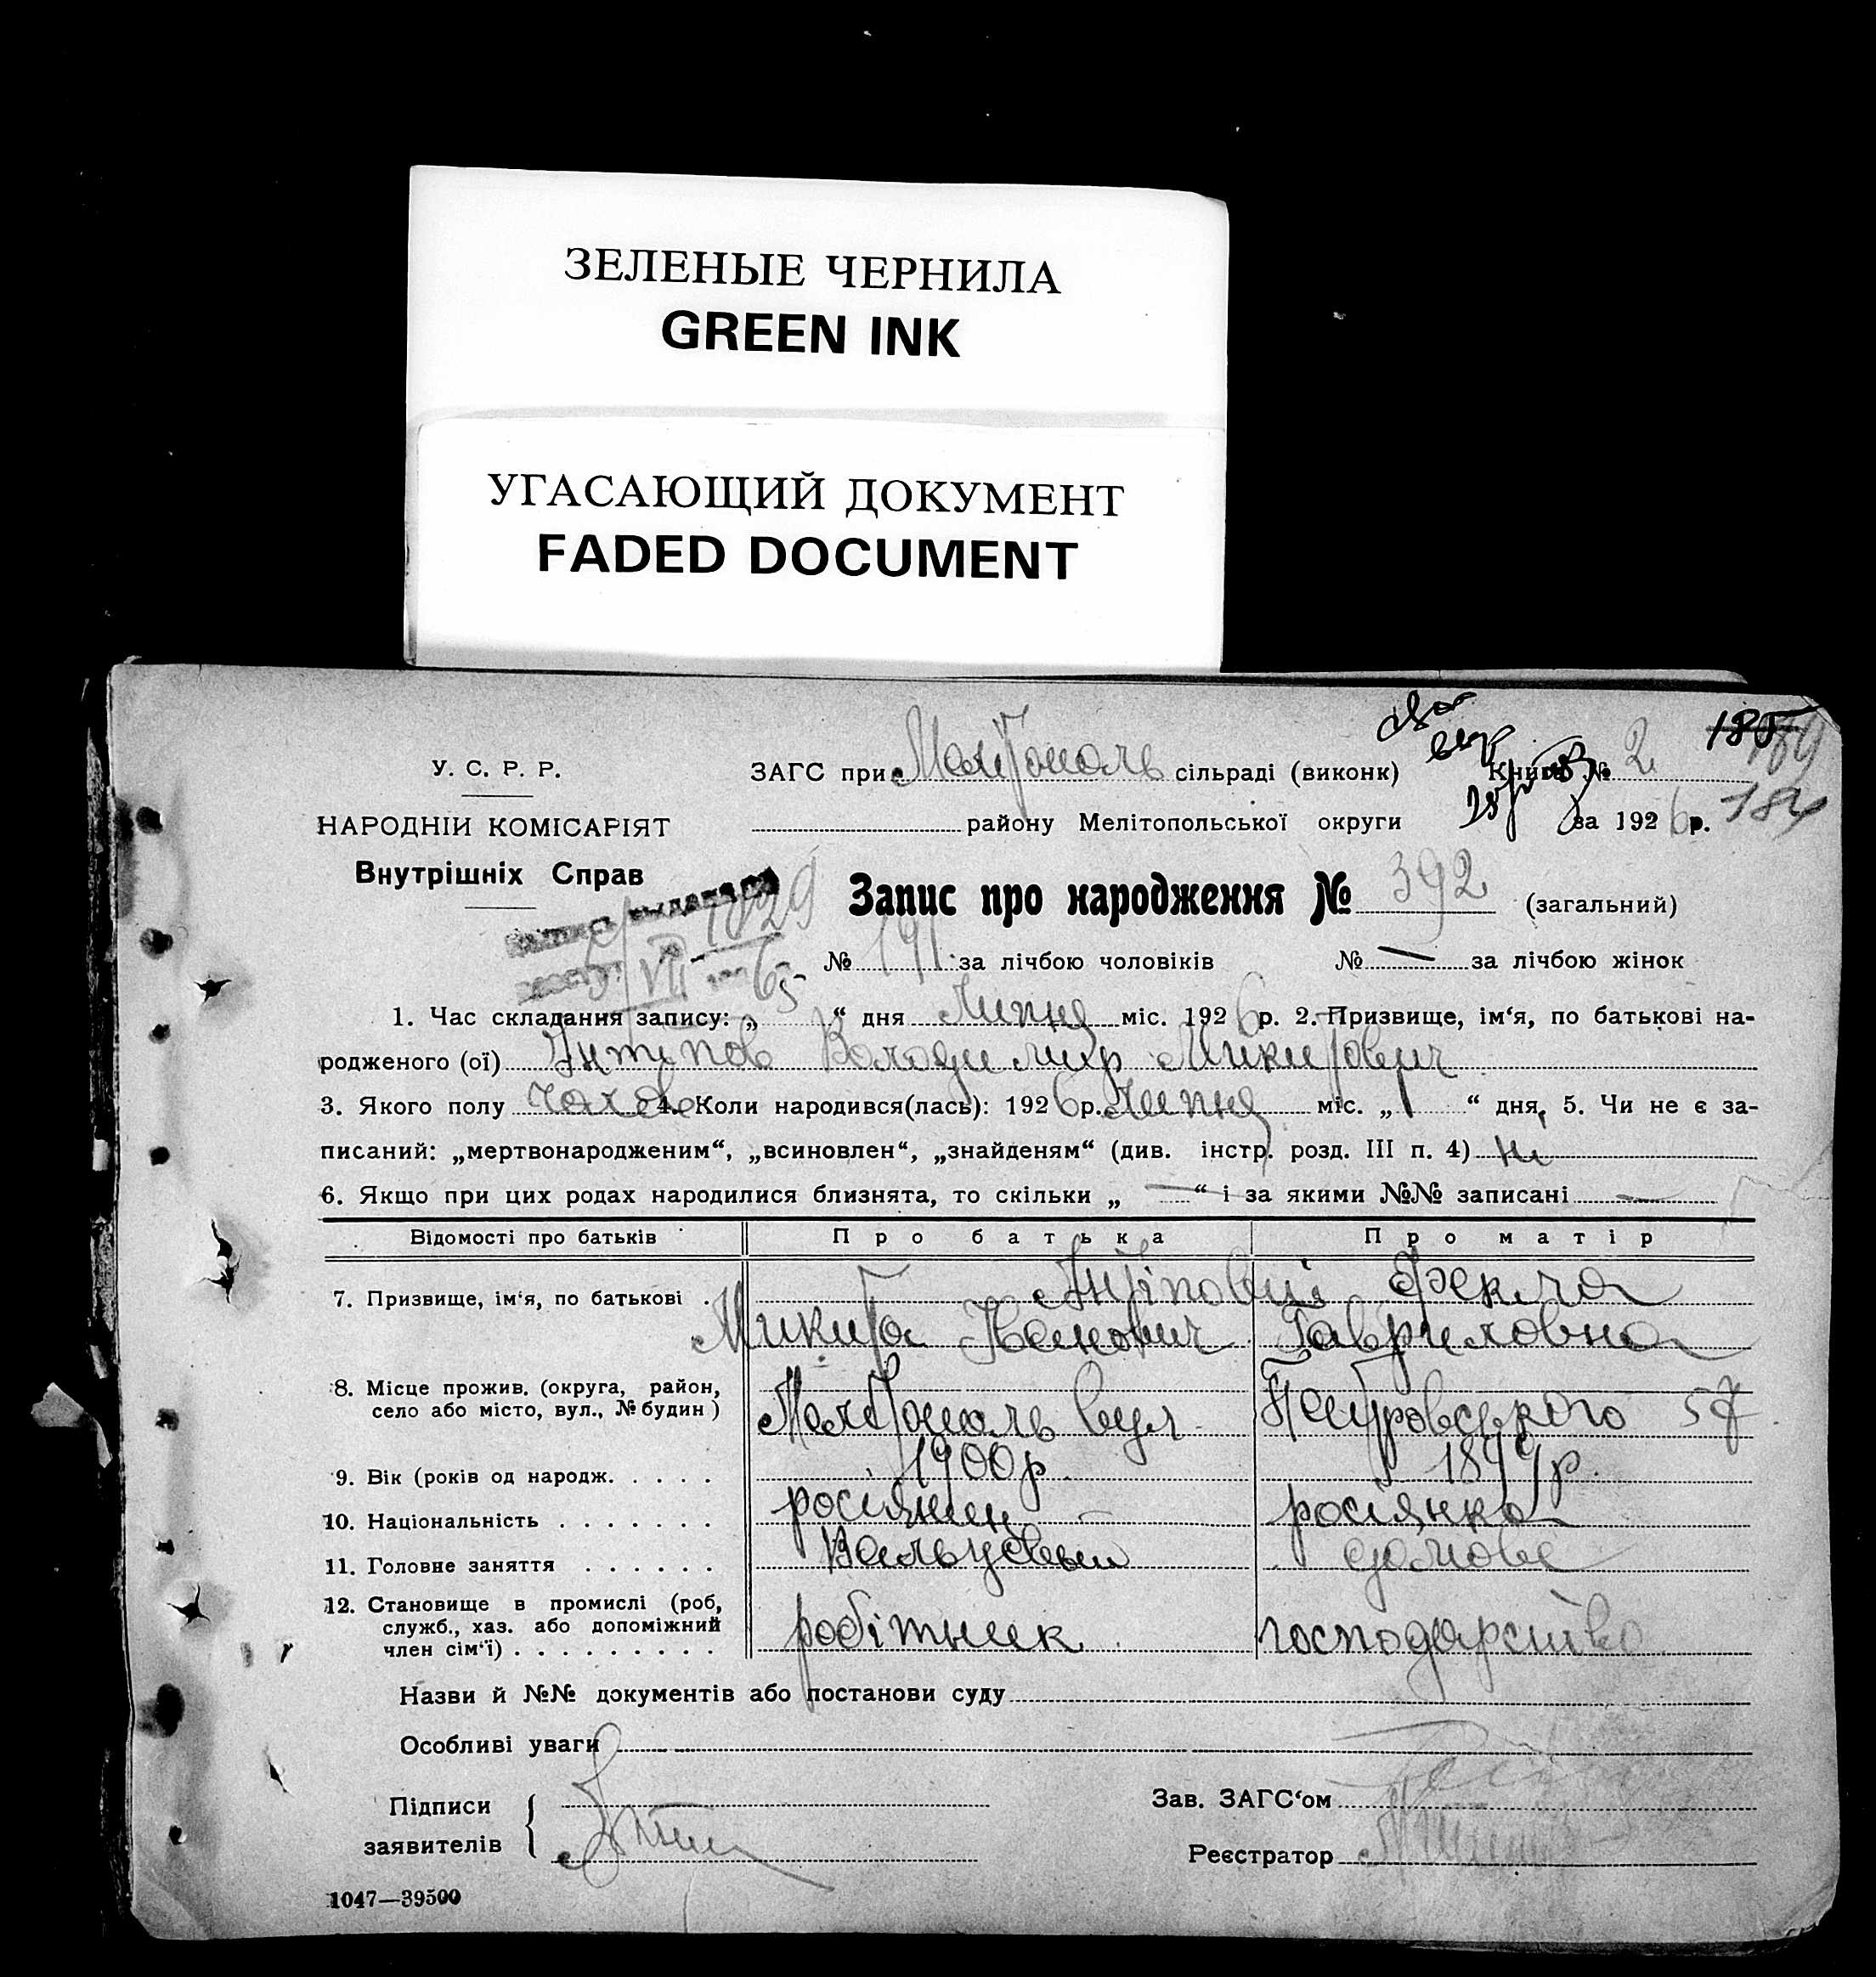 ЗЕЛЕНЫЕ ЧЕРНИЛА
GREEN INK
УГАСАЮЩИЙ ДОКУМЕНТ
FADED DOCUMENT
185 189
У. С. Р. Р. ЗАГС при Мелітополь сільраді (виконк) Книга № 2
НАРОДНІЙ КОМІСАРІЯТ району Мелітопольської округи за 1926 р. 184
Внутрішніх Справ
Запис про народження № 392 (загальний)
№ 191 за лічбою чоловіків № — за лічбою жінок
1. Час складання запису: „5“ дня Липня міс. 1926 р. 2. Призвище, ім‘я, по батькові на-
родженого (ої) Антіпов Володимир Микитович
3. Якого полу чолов 4. Коли народився(лась): 1926 р. Липня міс. „1“ дня, 5. Чи не є за-
писаний: „мертвонародженим“, „всиновлен“, „знайденям“ (див. інстр. розд. III п. 4) ні
6. Якщо при цих родах народилися близнята, то скільки „ — “ і за якими №№ записані —
Відомості про батьків Про батька Про матір
7. Призвище, ім‘я, по батькові . Антіпови Фекла
Микита Іванович Гавриловна
8. Місце прожив. (округа, район,
село або місто, вул., № будин) Мелітополь вул. Петровського 57
9. Вік (років од народж. . . . . 1900 р. 1899 р.
10. Національність . . . . . . . росіянин — росіянка
11. Головне заняття . . . . . . Вальцевый домове
12. Становище в промислі (роб,
служб., хаз. або допоміжний
член сім‘ї) . . . . . . . . . робітник господарство
Назви й №№ документів або постанови суду
Особливі уваги
Підписи
заявителів
Зав. ЗАГС‘ом
Реєстратор
1047—39500